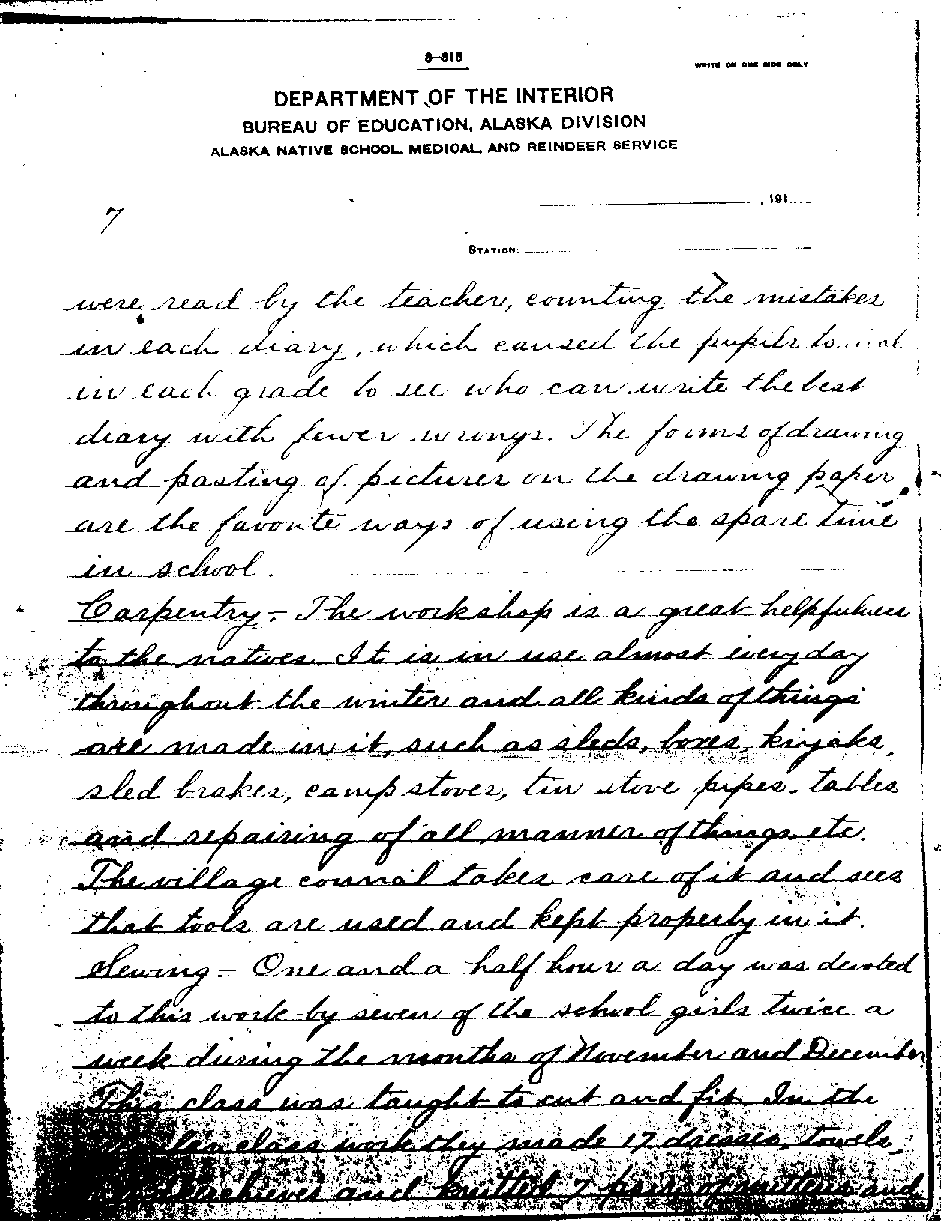 8-315
WRITE ON ONE SIDE ONLY
DEPARTMENT OF THE INTERIOR
BUREAU OF EDUCATION, ALASKA DIVISION
ALASKA NATIVE SCHOOL, MEDICAL, AND REINDEER SERVICE
, 191
7
STATION:
were read by the teacher, counting the mistakes
in each diary, which caused the pupils to
in each grade to see who can write the best
diary with fewer wrongs. The forms of drawing
and pasting of pictures on the drawing paper
are the favorite ways of using the spare time
in school.
Carpentry - The workshop is a great helpfulness
to the natives. It is in use almost everyday
throughout the winter and all kinds of things
are made in it, such as sleds, boxes, kiyaks,
sled brakes, camp stoves, tin stove pipes, tables
and repairing of all manner of things, etc.
The village council takes care of it and sees
that tools are used and kept properly in it.
Sewing - One and a half hour a day was devoted
to this work by seven of the school girls twice a
week during the months of November and December
This class was taught to cut and fit. In the
class work they made 17 dresses, towels,
and knitted 7 pairs of mittens and